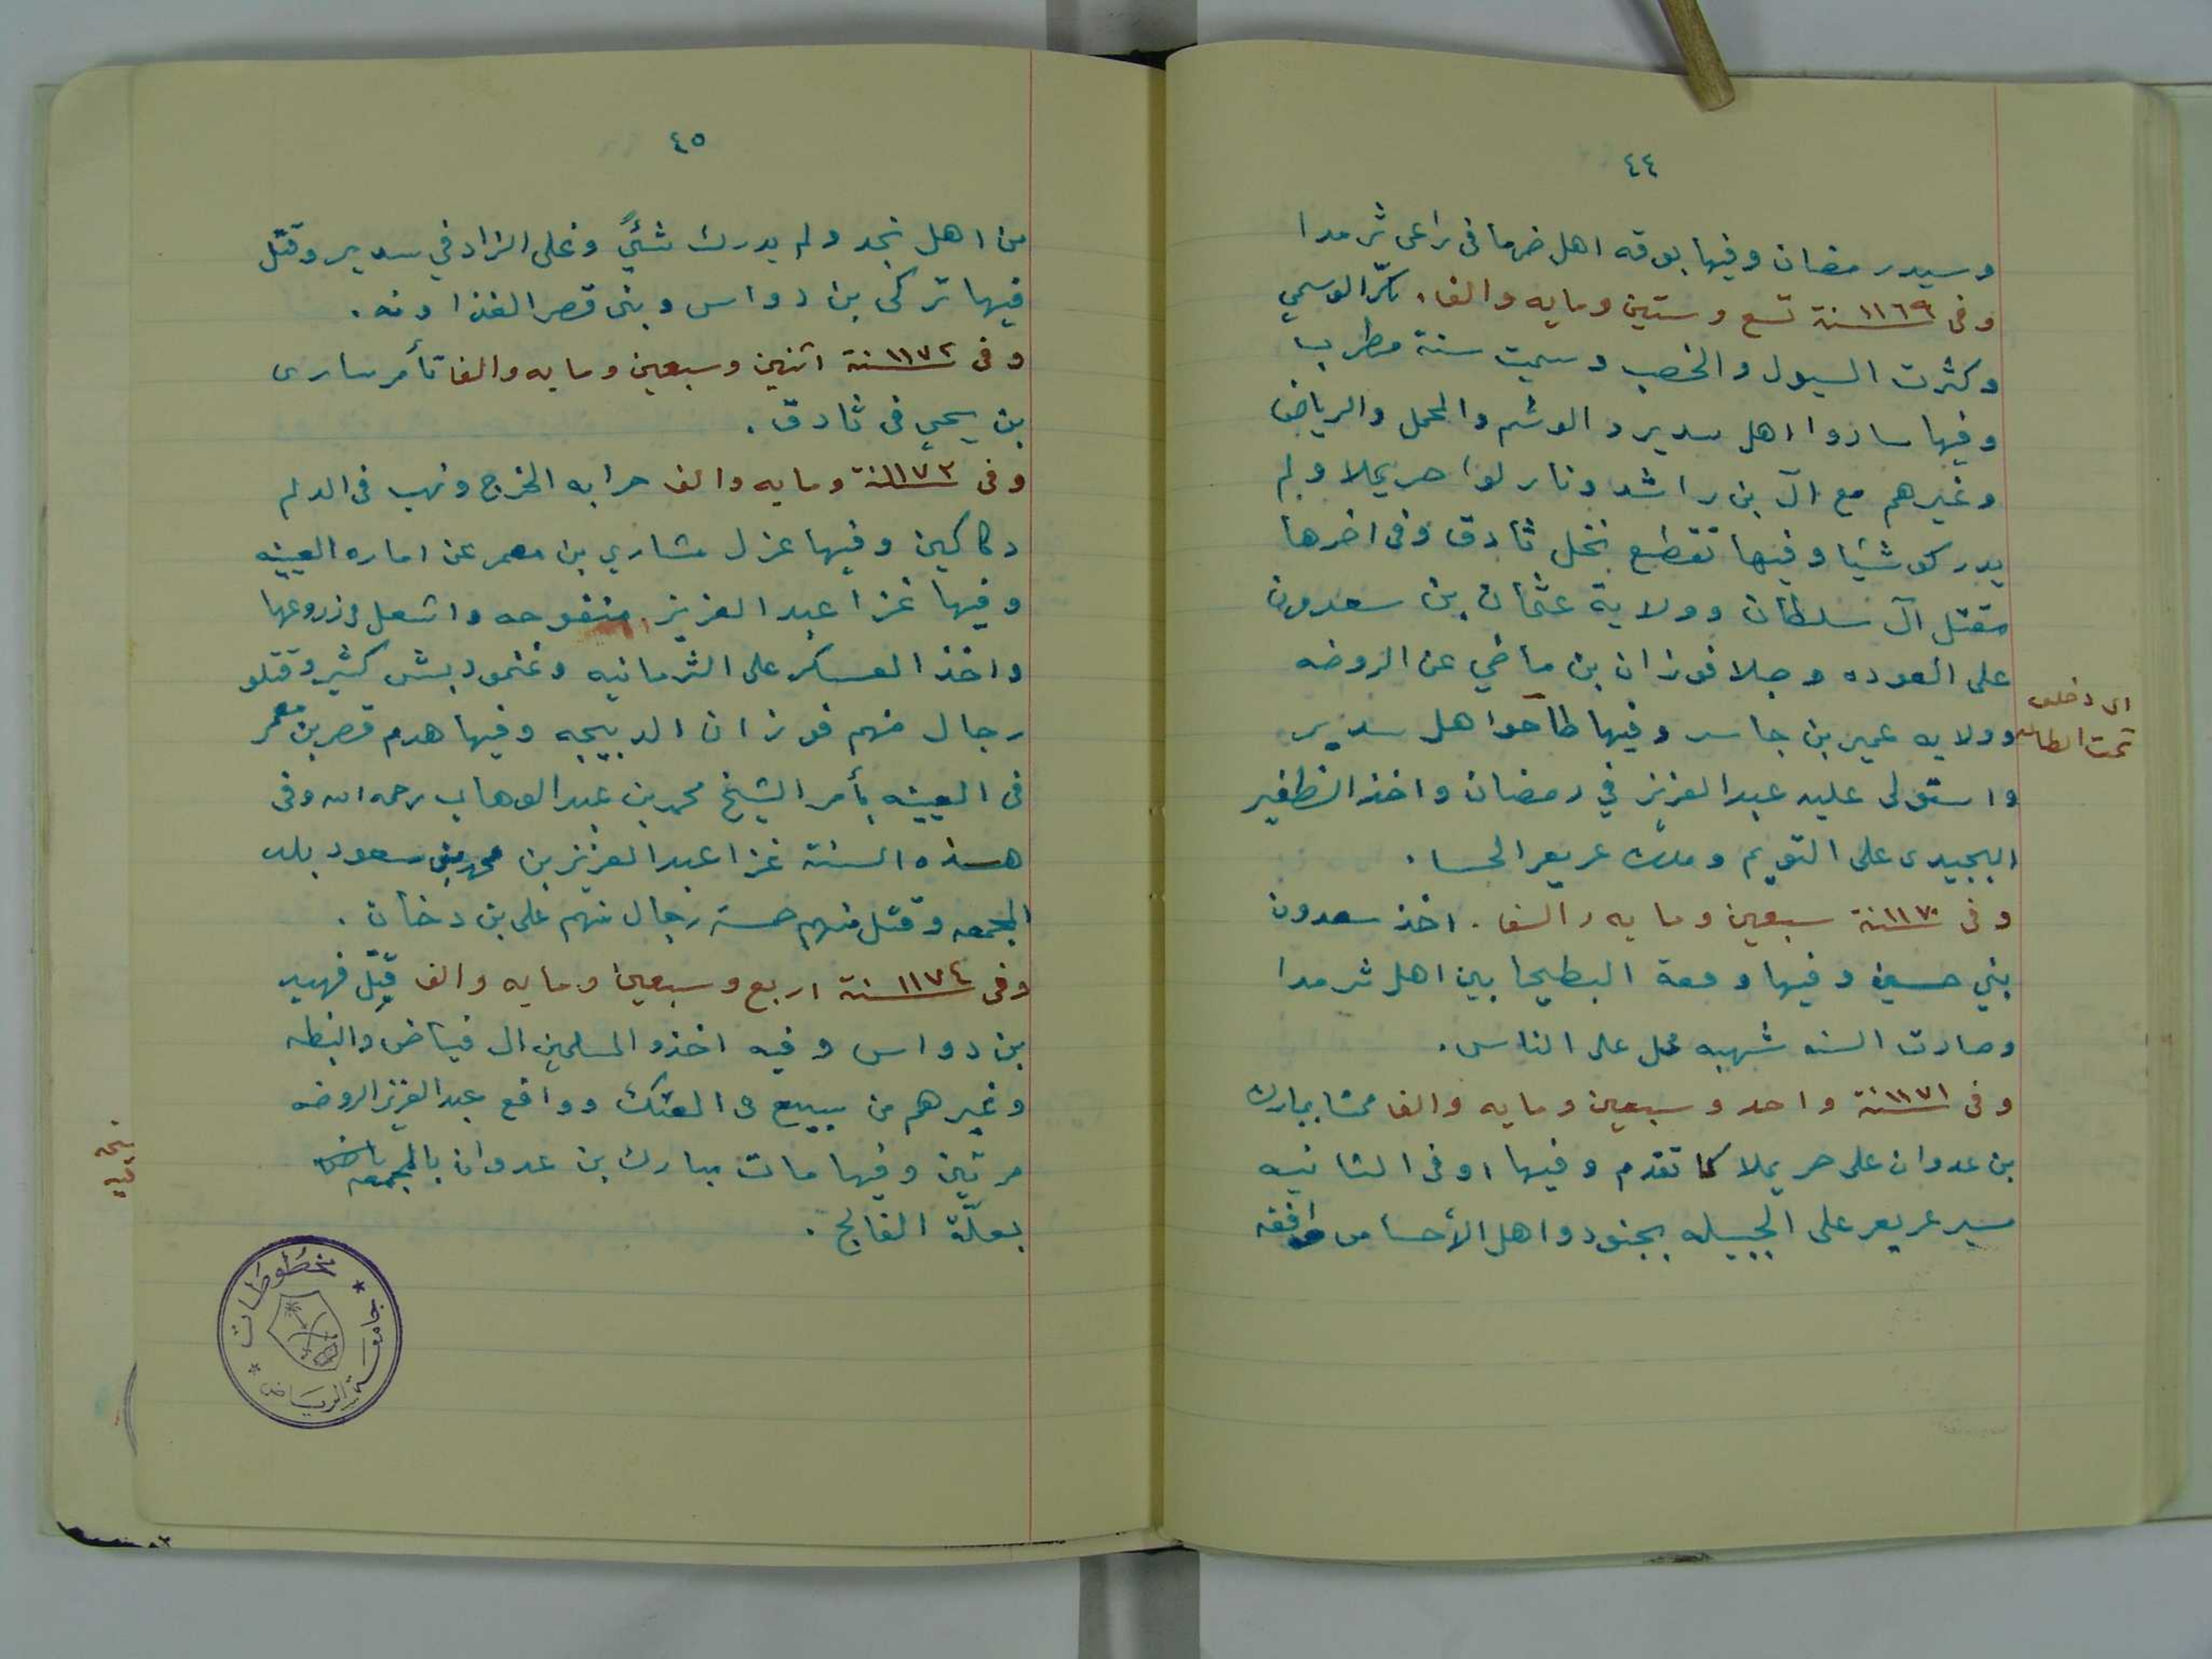 ٤٤
وسيدر رمضان وفيها بوقه اهل ضرما فى مراعى ثرمدا
وفى ١١٦٩سنة تسع وستين ومايه والف. بكّر الوسمي
وكثرت السيول والخصب وسميت سنة مطرب
وفيها ساروا اهل سدير والوشم والمحمل والرياض
وغيرهم مع آل بن راشد ونازلوا حريملا ولم
يدركو شيئا وفيها تقطيع نخل ثادق وفى اخرها
مقتل آل سلطان وولاية عثمان بن سعدون
على العوده وجلا فوزان بن ماضي عن الروضه
وولايه عمير بن جاسر وفيها طآحوا هل سدير
اى دخلو
تحت الطاعه
واستولى عليه عبدالعزيز في رمضان واخذ الظفير
البجيدى على التويم وملك عريعر الحسا.
وفى ١١٧٠سنة سبعين ومايه والف. اخذ سعدون
بني حسين وفيها وقعة البطيحا بين اهل ثرمدا
وصارت السنه شهبه محل على الناس.
وفى ١١٧١سنة واحد وسبعين ومايه والف ممشا مبارك
بن عدوان على حريملا كما تقدم وفيها اوفى الثانيه
سير عريعر على الجبيله بجنود واهل الأحسا من وافقه
٤٥
من اهل نجد ولم يدرك شئيً وغلى الزاد في سدير وقتل
فيها تركى بن دواس وبنى قصر الغذاونه.
وفى ١١٧٢سنة اثنين وسبعين ومايه والف تأمر سارى
بن يحيى فى ثادق.
وفى ١١٧٣سنة ومايه والف حرابه الخرج ونهب فى الدلم
دكاكين وفيها عزل مشاري بن معمر عن اماره العيينه
وفيها غزا عبدالعزيز منفوحه واشعل فى زروعها
واخذ العسكر على الثرمانيه وغنمو دبش كثير وقتلو
رجال منهم فوزان الدبيجه وفيها هدم قصر بن معمر
فى العيينه بأمر الشيخ محمد بن عبدالوهاب رحمه الله وفى
هسذه السنة غزا عبدالعزيز بن محمد بن سعود بلد
المجمعه وقتل منهم خمسة رجال منهم على بن دخان.
وفى ١١٧٤سنة اربع وسبعين ومايه والف قُتِل فهيد
بن دواس وفيه اخذو المسلمين ال فياض والنبطه
وغيرهم من سبيع فى العتك وواقع عبدالعزيز الروضه
مرتين وفيها مات مبارك بن عدوان بالمجمعه
بعلّة الفالج.
مخطوطات
جامعة الرياض